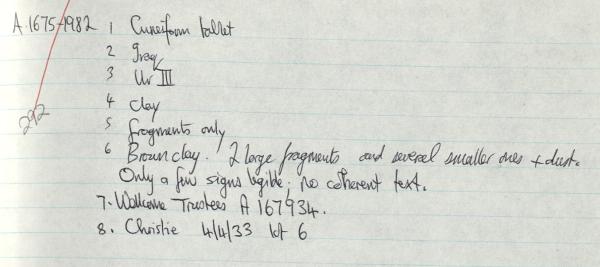 A.1675-1982 1 Cuneiform tablet
2 Iraq
3 Ur III
292
4 Clay
5 fragments only
6 Brown clay. 2 large fragments and several smaller ones + dust.
Only a few signs legible; no coherent text.
7. Wellcome Trustees A 167934.
8. Christie 4/4/33 lot 6